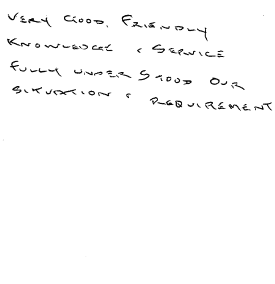 VERY GOOD, FRIENDLY
KNOWLEDGE & SERVICE
FULLY UNDERSTOOD OUR
SITUATION & REQUIREMENT